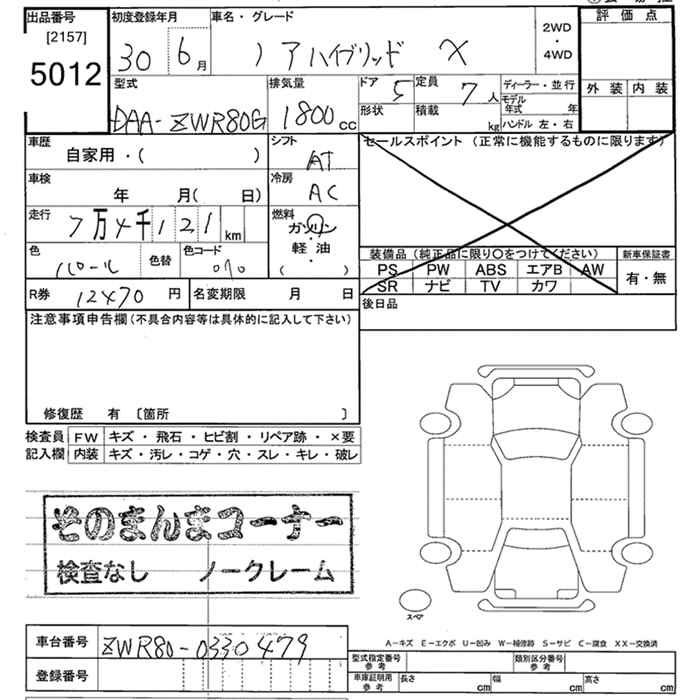 出品番号 初度登録年月 車名・グレード 評価点
[2157] 30 6月 ノアハイブリッド X 2WD・4WD
5012 外装 内装
型式 排気量 ドア 5 定員 7人 ディーラー・並行
DAA-ZWR80G 1800cc 形状 積載 kg モデル年式 年
ハンドル 左・右
車歴 シフト セールスポイント (正常に機能するものに限ります)
自家用・( ) AT
車検 冷房
年 月( 日) AC
走行 燃料
7万4千121km ガソリン
軽油
色 色替 色コード ( ) 装備品 (純正品に限り〇をつけてください) 新車保証書
パール 070 PS PW ABS エアB AW 有・無
SR ナビ TV カワ
R券 12470円 名変期限 月 日 後日品
注意事項申告欄(不具合内容等は具体的に記入して下さい)
修復歴 有 〔箇所 〕
検査員 FW キズ・飛石・ヒビ割・リペア跡・×要
記入欄 内装 キズ・汚レ・コゲ・穴・スレ・キレ・破レ
そのまんまコーナー
検査なし ノークレーム
スペア
A－キズ E－エクボ U－凹み W－補修跡 S－サビ C－腐食 XX－交換済
車台番号 ZWR80-0330479 型式指定番号参考 類別区分番号参考
登録番号 車庫証明用参考 長さ cm 幅 cm 高さ cm